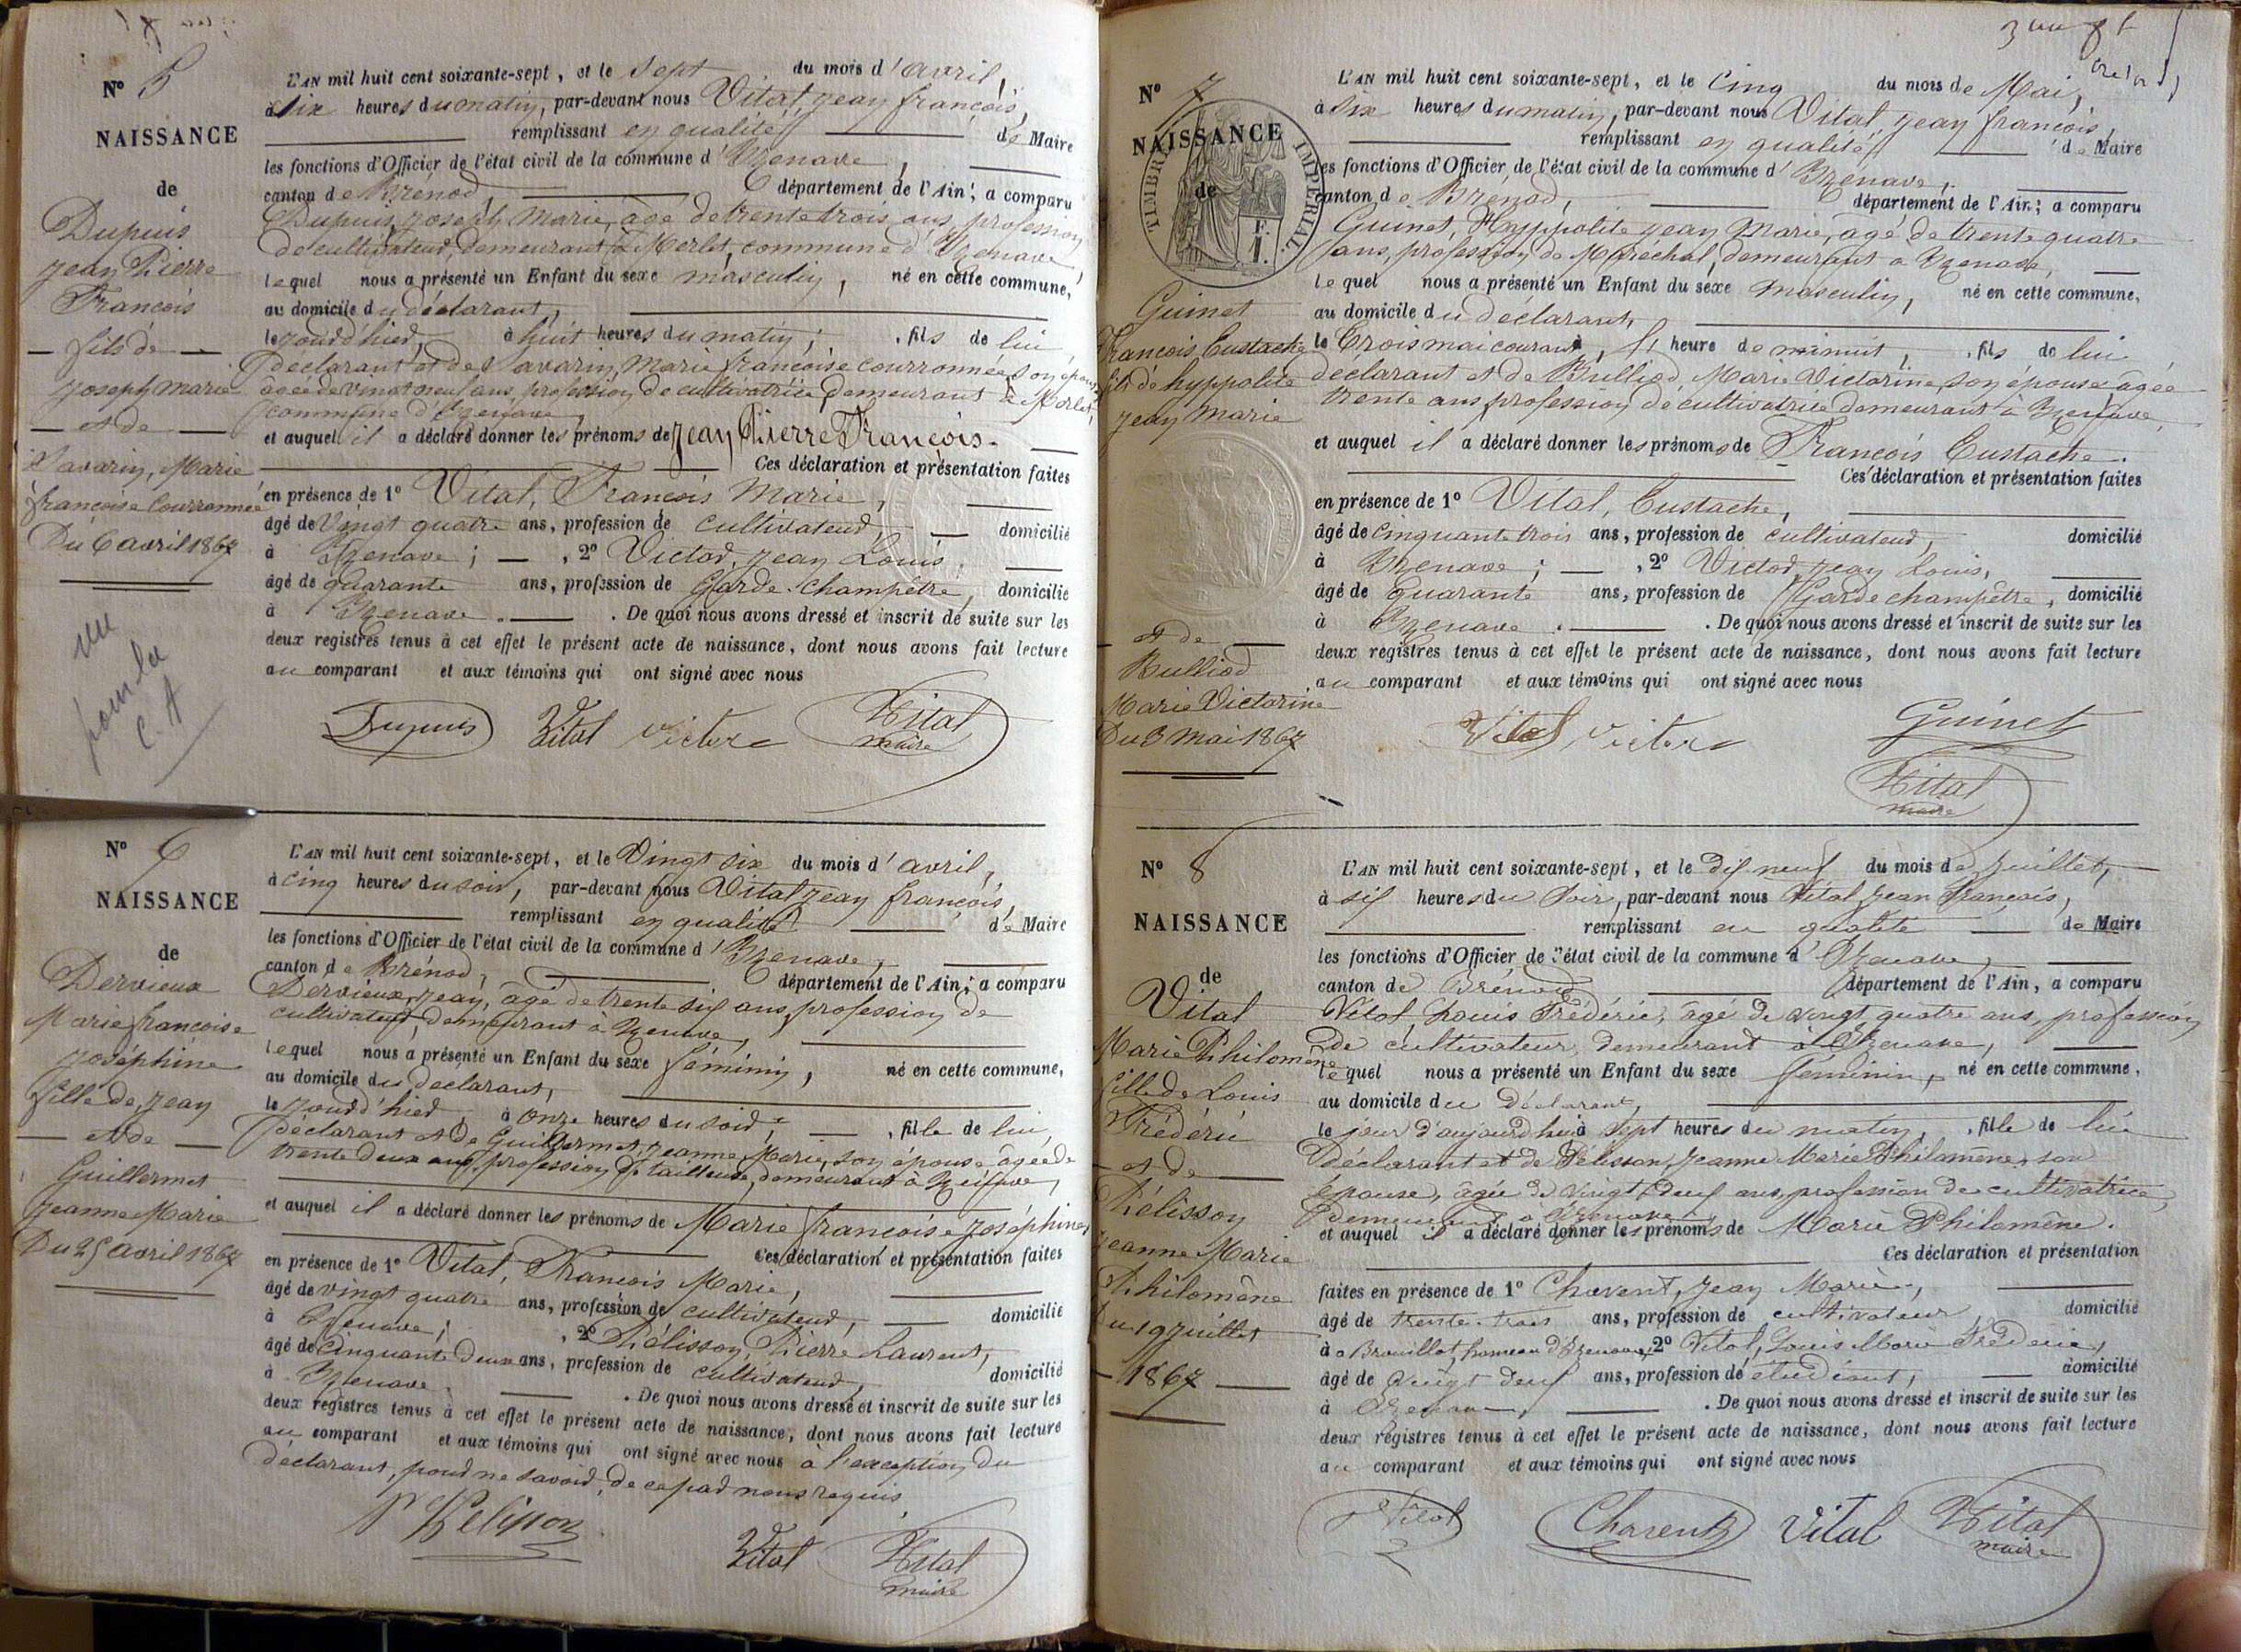 Nº 5
NAISSANCE
de
Dupuis
Jean Pierre
François
fils de
Joseph Marie
et de
Savarin, Marie
françoise Courronnée
Du 6 avril 1867
vu
pour la
C. A
L'AN mil huit cent soixante-sept, et le sept du mois d'avril,
à six heures du matin, par-devant nous Vital, Jean françois,
remplissant en qualité de Maire
les fonctions d'Officier de l'état civil de la commune d'Izenave,
canton de Brénod, département de l'Ain; a comparu
Dupuis, Joseph Marie, âgé de trente trois ans, profession
de cultivateur, demeurant à Merlot, commune d'Izenave,
lequel nous a présenté un Enfant du sexe masculin, né en cette commune,
au domicile du déclarant,
le jour d'hier, à huit heures du matin; , fils de lui
déclarant et de Savarin, Marie françoise courronnée, son épouse
âgée de vingt neuf ans, profession de cultivatrice, demeurant à Merlot,
commune d'Izenave,
et auquel il a déclaré donner les prénoms de Jean Pierre François.
Ces déclaration et présentation faites
en présence de 1º Vital, François Marie,
âgé de Vingt quatre ans, profession de cultivateur, domicilié
à Izenave; , 2º Victor, Jean Louis,
âgé de quarante ans, profession de Garde-Champêtre, domicilié
à Izenave. . De quoi nous avons dressé et inscrit de suite sur les
deux registres tenus à cet effet le présent acte de naissance, dont nous avons fait lecture
au comparant et aux témoins qui ont signé avec nous
Dupuis Vital Victor Vital
maire
Nº 6
NAISSANCE
de
Dervieux
Marie françoise
Joséphine
fille de Jean
et de
Guillermet
Jeanne Marie
Du 25 avril 1867
L'AN mil huit cent soixante-sept, et le Vingt six du mois d'avril,
à cinq heures du soir, par-devant nous Vital Jean françois,
remplissant en qualité de Maire
les fonctions d'Officier de l'état civil de la commune d'Izenave,
canton de Brénod, département de l'Ain; a comparu
Dervieux, Jean, âgé de trente six ans, profession de
cultivateur, demeurant à Izenave,
lequel nous a présenté un Enfant du sexe féminin, né en cette commune,
au domicile du déclarant,
le jour d'hier à onze heures du soir, , fille de lui
déclarant et de Guillermet, Jeanne Marie, son épouse âgée de
trente deux ans, profession de tailleuse, demeurant à Izenave,
et auquel il a déclaré donner les prénoms de Marie françoise Joséphine,
Ces déclaration et présentation faites
en présence de 1º Vital, François Marie,
âgé de vingt quatre ans, profession de cultivateur, domicilié
à Izenave; , 2º Pélisson, Pierre Laurent,
âgé de Cinquante deux ans, profession de cultivateur, domicilié
à Izenave. . De quoi nous avons dressé et inscrit de suite sur les
deux registres tenus à cet effet le présent acte de naissance, dont nous avons fait lecture
au comparant et aux témoins qui ont signé avec nous à l'exception du
déclarant, pour ne savoir, de ce par nous requis.
P Pelisson Vital Vital
maire
Nº 7
NAISSANCE
de
TIMBRE IMPERIAL
Guinet
François Eustache
fils de hyppolite
Jean Marie
et de
Bulliod
Marie Victorine
Du 3 mai 1867
L'AN mil huit cent soixante-sept, et le Cinq du mois de Mai,
à six heures du matin, par-devant nous Vital, Jean françois,
remplissant en qualité de Maire
les fonctions d'Officier de l'état civil de la commune d'Izenave,
canton de Brénod, département de l'Ain; a comparu
Guinet, Hyppolite Jean Marie, âgé de trente quatre
ans, profession de Maréchal, demeurant à Izenave,
lequel nous a présenté un Enfant du sexe masculin, né en cette commune,
au domicile du déclarant,
le Trois mai courant, heure de minuit, , fils de lui
déclarant et de Bulliod, Marie Victorine, son épouse âgée
trente ans, profession de cultivatrice demeurant à Izenave,
et auquel il a déclaré donner les prénoms de François Eustache.
Ces déclaration et présentation faites
en présence de 1º Vital, Eustache,
âgé de cinquante trois ans, profession de cultivateur, domicilié
à Izenave; , 2º Victor, Jean Louis,
âgé de Quarante ans, profession de Garde champêtre, domicilié
à Izenave. . De quoi nous avons dressé et inscrit de suite sur les
deux registres tenus à cet effet le présent acte de naissance, dont nous avons fait lecture
au comparant et aux témoins qui ont signé avec nous
Vital Victor Guinet
Vital
maire
Nº 8
NAISSANCE
de
Vital
Marie Philomène
fille de Louis
Frédéric
et de
Pélisson
Jeanne Marie
Philomène
Du 19 juillet
1867
L'AN mil huit cent soixante-sept, et le dix neuf du mois de juillet,
à six heures du soir, par-devant nous Vital Jean François,
remplissant en qualité de Maire
les fonctions d'Officier de l'état civil de la commune d'Izenave,
canton de Brénod département de l'Ain, a comparu
Vital, Louis Frédéric, âgé de vingt quatre ans, profession
de cultivateur, demeurant à Izenave,
lequel nous a présenté un Enfant du sexe féminin, né en cette commune,
au domicile du déclarant,
le jour d'aujourd'hui à sept heures du matin, , fille de lui
déclarant et de Pelisson, Jeanne Marie Philomène, son
épouse, âgée de vingt neuf ans, profession de cultivatrice,
demeurant à Izenave,
et auquel il a déclaré donner les prénoms de Marie Philomène.
Ces déclaration et présentation
faites en présence de 1º Charent, Jean Marie,
âgé de trente-trois ans, profession de cultivateur, domicilié
à Brouillat, hameau d'Izenave, 2º Vital, Louis Marie Frédéric,
âgé de vingt deux ans, profession de étudiant, domicilié
à Izenave, . De quoi nous avons dressé et inscrit de suite sur les
deux registres tenus à cet effet le présent acte de naissance, dont nous avons fait lecture
au comparant et aux témoins qui ont signé avec nous
Vital Charent Vital Vital
maire